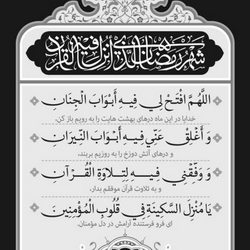 شهر رمضان الذي أنزل فيه القرآن
اللَّهُمَّ افْتَحْ لِي فِيهِ أَبْوَابَ الْجِنَانِ
خدایا در این ماه درهای بهشت هایت را به رویم باز کن،
وَ أَغْلِقْ عَنِّي فِيهِ أَبْوَابَ النِّيرَانِ
و درهای آتش دوزخ را به رویم بربند،
وَ وَفِّقْنِي فِيهِ لِتِلَاوَةِ الْقُرْآنِ
و به تلاوت قرآن موفقم بدار،
يَا مُنْزِلَ السَّكِينَةِ فِي قُلُوبِ الْمُؤْمِنِينَ
ای فرو فرستنده آرامش در دل مؤمنان.